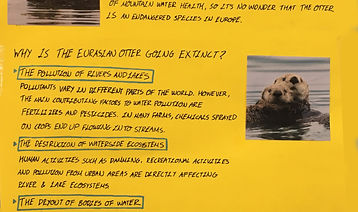 OF MOUNTAIN WATER HEALTH, SO ITS NO WONDER THAT THE OTTER
IS AN ENDANGERED SPECIES IN EUROPE.
WHY IS THE EURASIAN OTTER GOING EXTINCT?
THE POLLUTION OF RIVERS AND LAKES
POLLUTANTS VARY IN DIFFERENT PARTS OF THE WORLD. HOWEVER,
THE MAIN CONTRIBUTING FACTORS TO WATER POLLUTION ARE
FERTILIZERS AND PESTICIDES. IN MANY FARMS, CHEMICALS SPRAYED
ON CROPS END UP FLOWING INTO STREAMS.
THE DESTRUCTION OF WATERSIDE ECOSYSTEMS
HUMAN ACTIVITIES SUCH AS DAMMING, RECREATIONAL ACTIVITIES
AND POLLUTION FROM URBAN AREAS ARE DIRECTLY AFFECTING
RIVER & LAKE ECOSYSTEMS
THE DRYOUT OF BODIES OF WATER